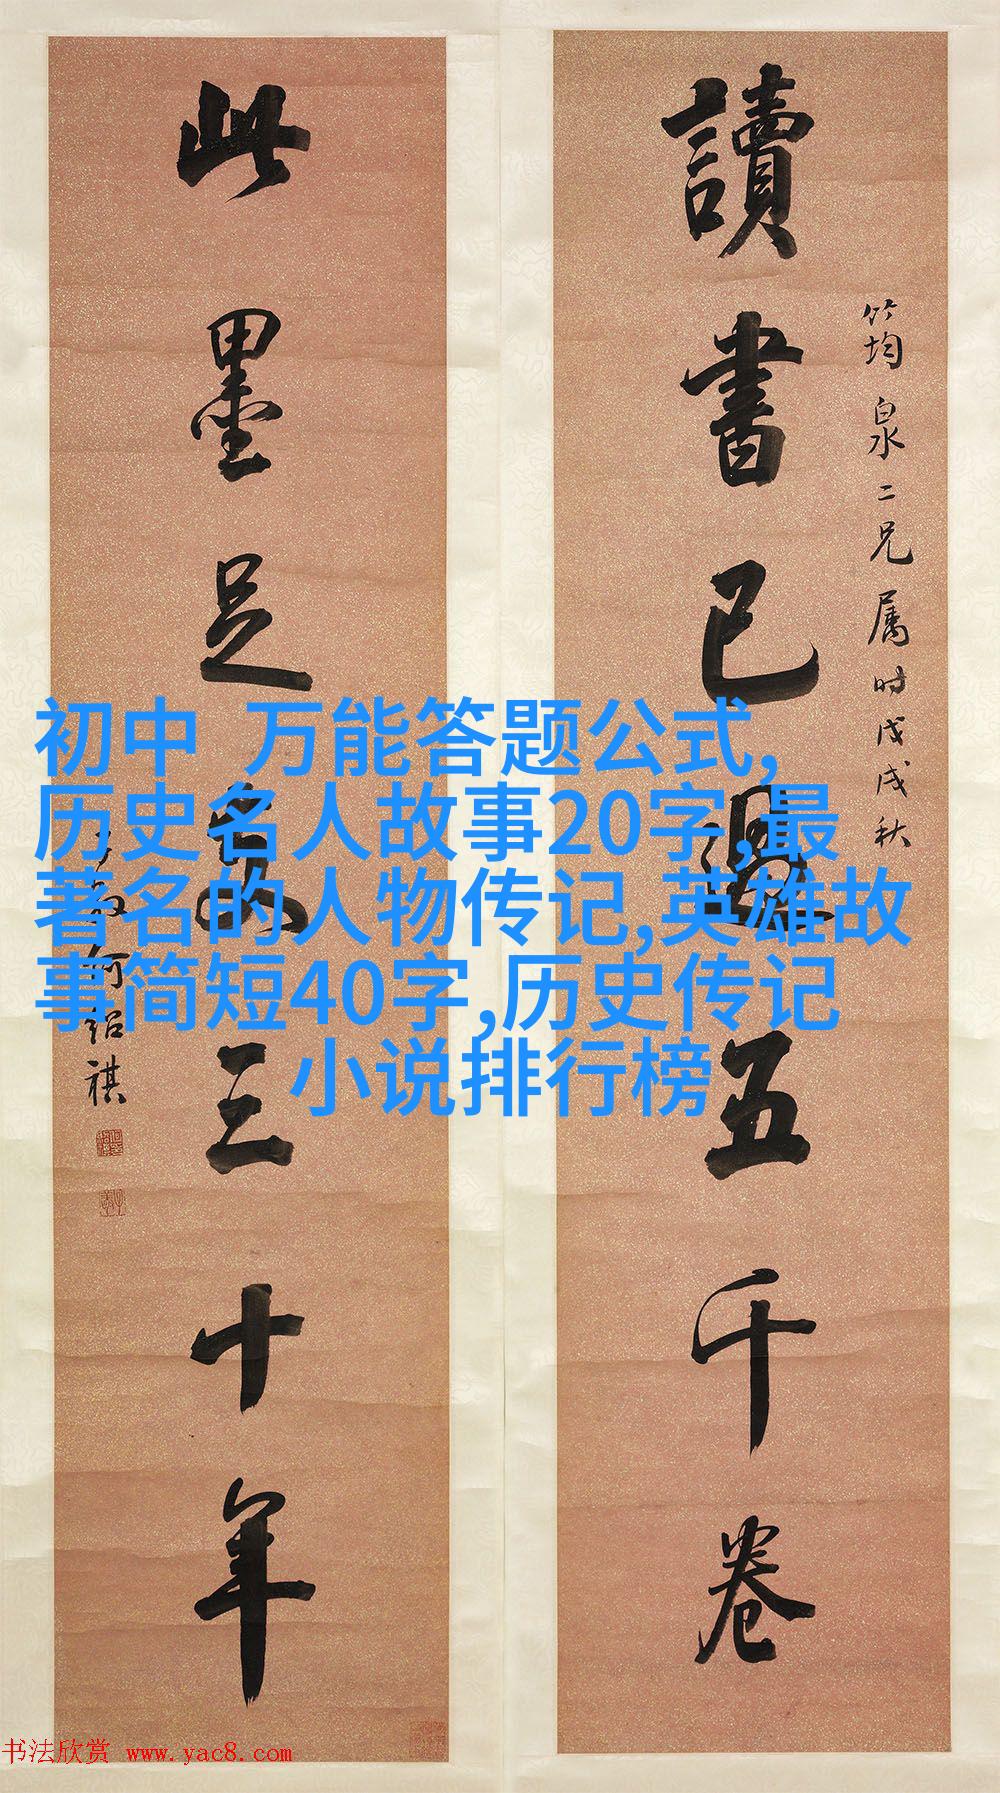 讀書已過五千卷
竹均泉二兄属时戊戌秋
此墨足三十年
何紹祺
初中 万能答题公式,
历史名人故事20字,最
著名的人物传记,英雄故
事简短40字,历史传记
小说排行榜
书法欣赏 www.yac8.com